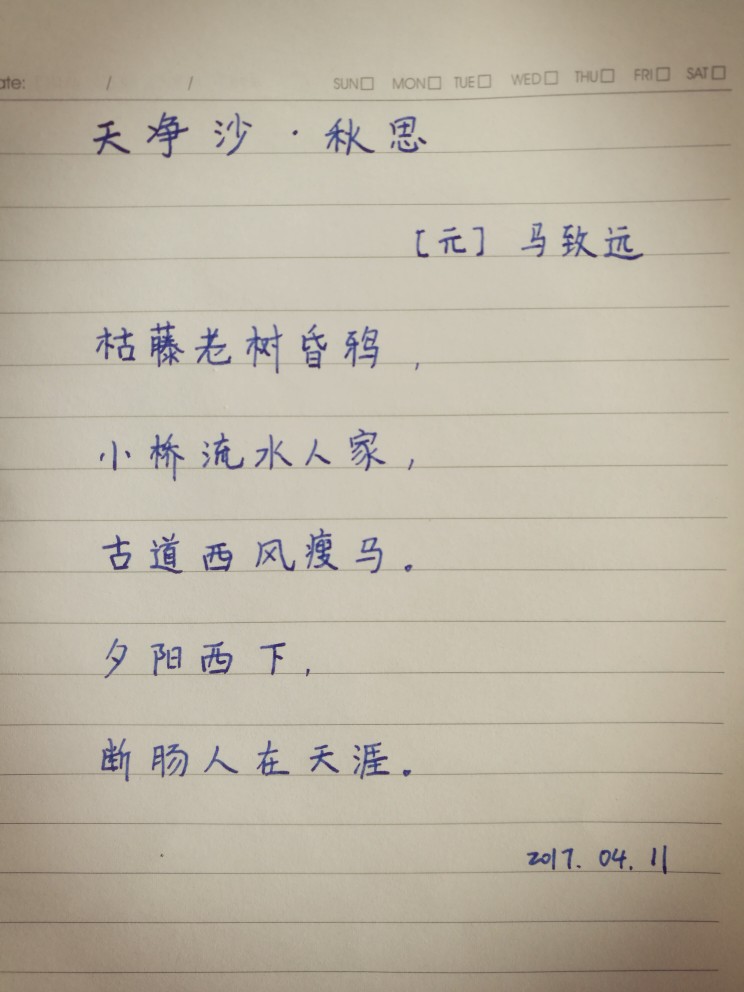 ate: / /    SUN□ MON□ TUE□ WED□ THU□ FRI□ SAT□
天净沙·秋思
[元] 马致远
枯藤老树昏鸦，
小桥流水人家，
古道西风瘦马。
夕阳西下，
断肠人在天涯。
2017.04.11